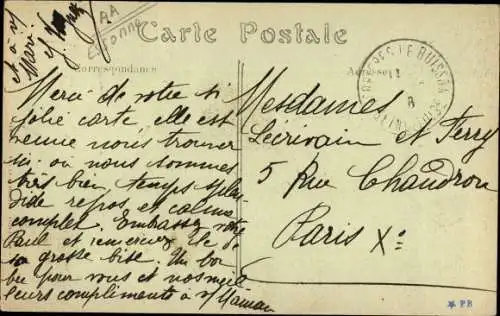 AA
Essonne
Carte Postale
Correspondance
Adresse
Merci de votre si
jolie carte elle est
venue nous trouver
ici où nous sommes
très bien, temps splen
dide repos et calme
complet. Embrassez votre
Paul et remerciez le de
sa grosse bise. Un bon
 pour vous et nos meil
leurs compliments à Maman
Mesdames
Lécrivain et Ferry
5 Rue Chaudron
Paris Xe
LE BUISSON
* PB